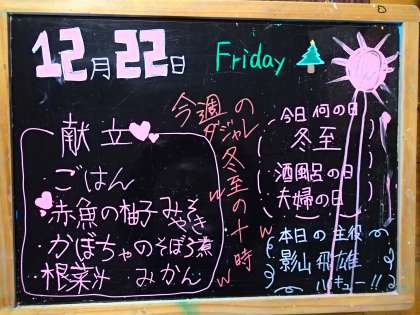 12月22日 Friday
献立
・ごはん
・赤魚の柚子みそやき
・かぼちゃのそぼろ煮
・根菜汁 みかん
今週の
ダジャレ
冬至の十時
w w w
今日何の日
冬至
酒風呂の日
夫婦の日
本日の主役
影山飛雄
ハイキュー!!